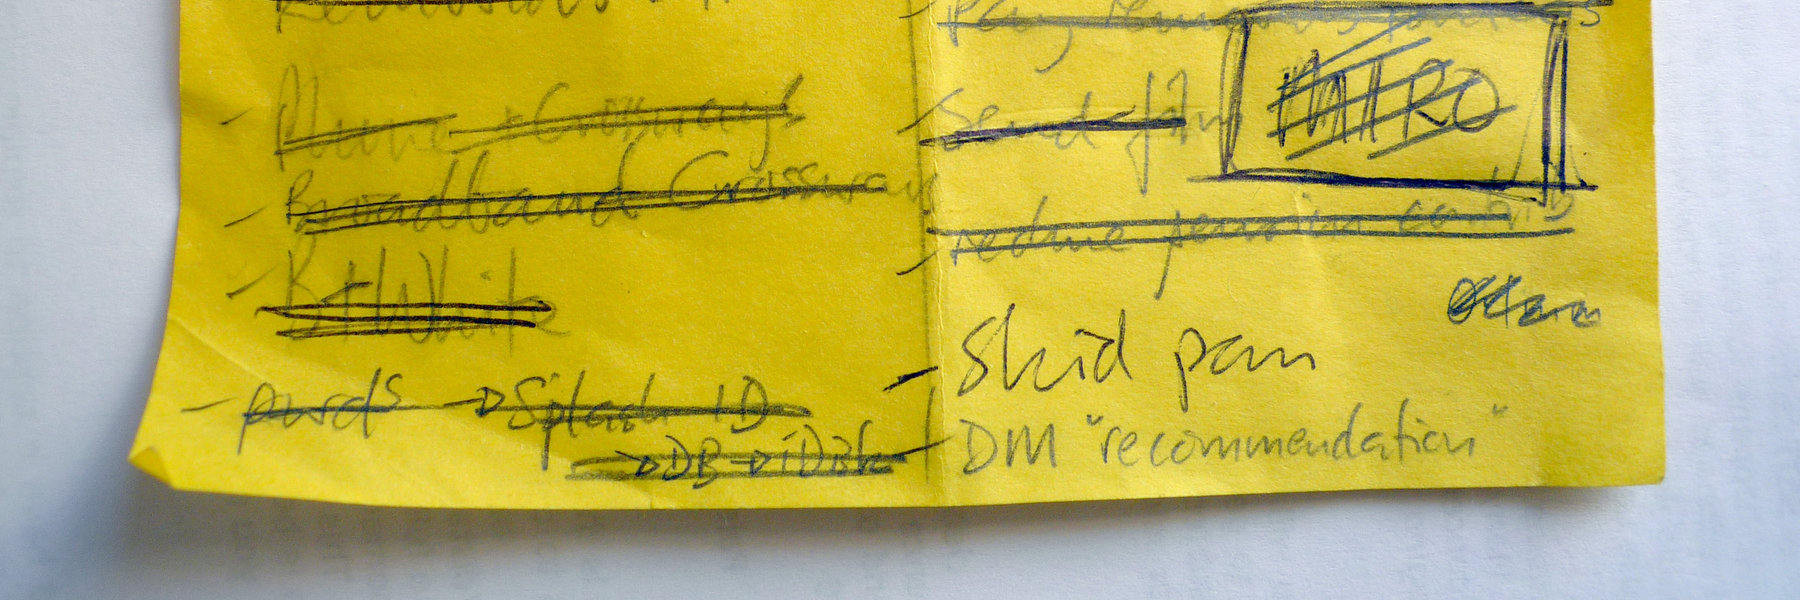 Phone + Crossways
Broadband Crossways
Bt White
pwds → Splash ID
→ DB → iDisk
Pay
Send
INTRO
reduce pension contrib
Skid pan
DM "recommendation"